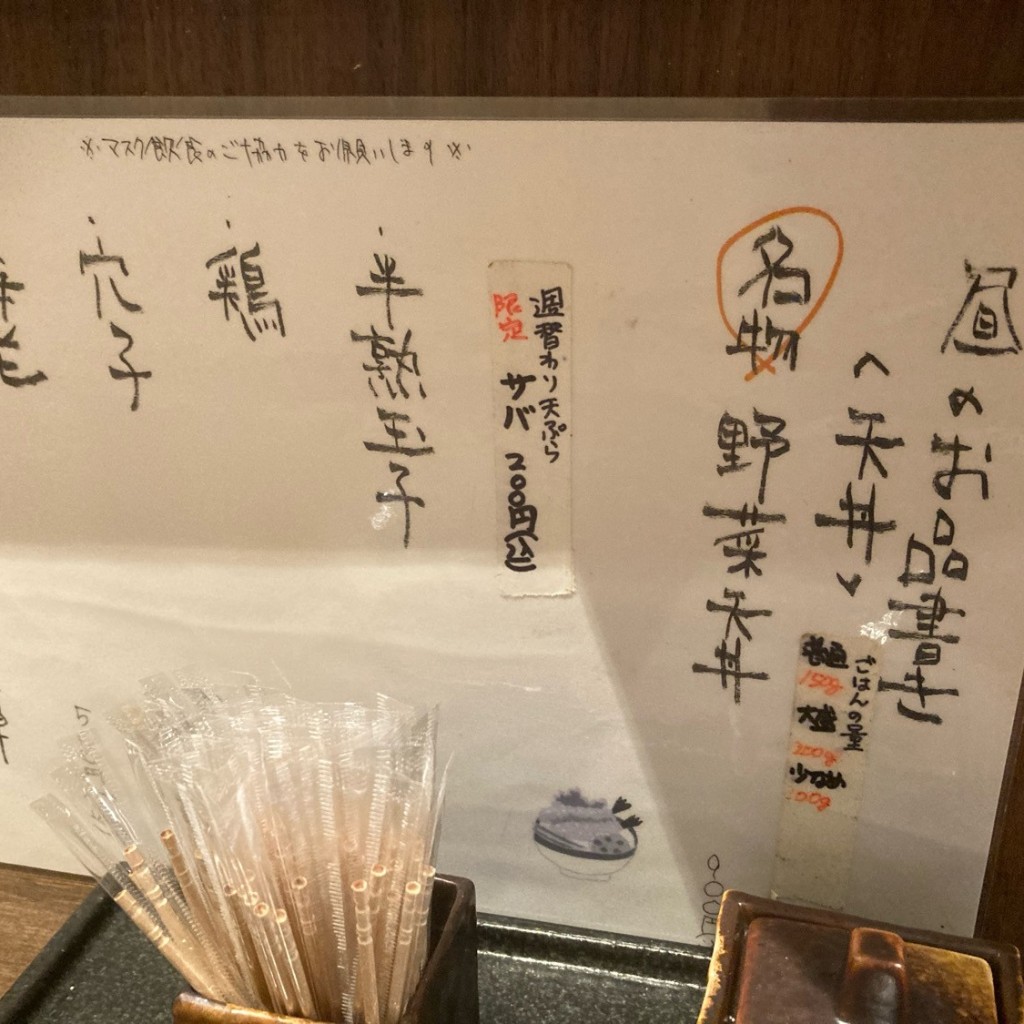 ※マスク飲食のご協力をお願いします※
昼のお品書き
〈天丼〉
ごはんの量
普通
150g
大盛
200g
少なめ
100g
名物 野菜天丼
週替わり天ぷら
限定 サバ 200円(込)
・半熟玉子
・鶏
・穴子